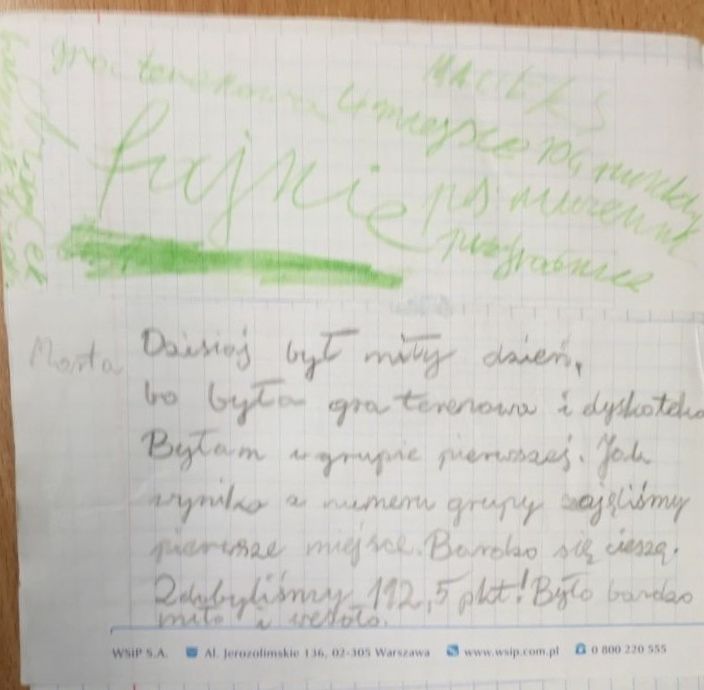 MACIEK S
gra terenowa 4 miejsce
fajnie
Marta
Dzisioj był miły dzień,
bo była gra terenowa i dyskoteka
Byłam w grupie pierwszej. Jak
wynika z numeru grupy zajęliśmy
pierwsze miejsce. Bardzo się cieszę.
Zdobyliśmy 112,5 pkt! Było bardzo
miło i wesoło.
WSiP S.A. Al. Jerozolimskie 136, 02-305 Warszawa www.wsip.com.pl 0 800 220 555